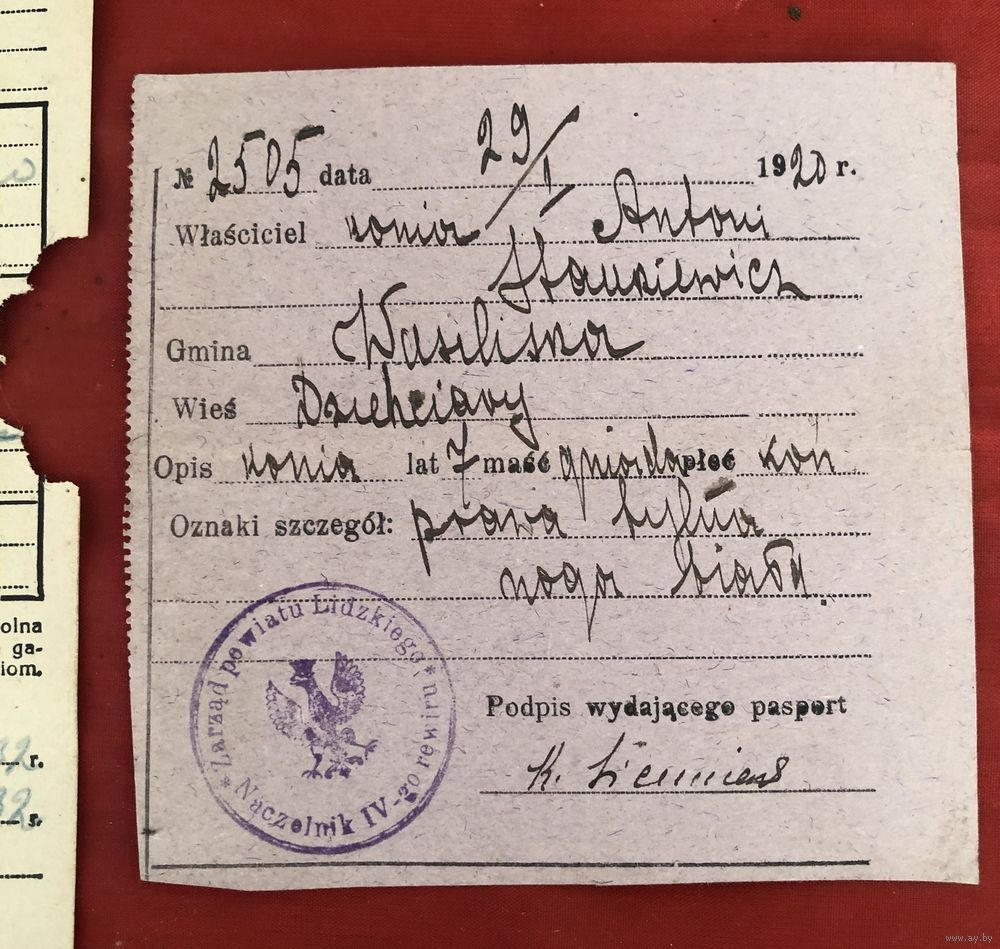 olna
ga-
iom.
32 r.
32 s.
№ 2505 data 29/I 1920 r.
Właściciel konia Antoni
Stankiewicz
Gmina Wasiliszka
Wieś Dziehciary
Opis konia lat 7 maść gniada płeć koń
Oznaki szczegół: prawa tylna
noga biała.
* Zarząd powiatu Lidzkiego *
Naczelnik IV-go rewiru
Podpis wydającego pasport
K.
www.ay.by